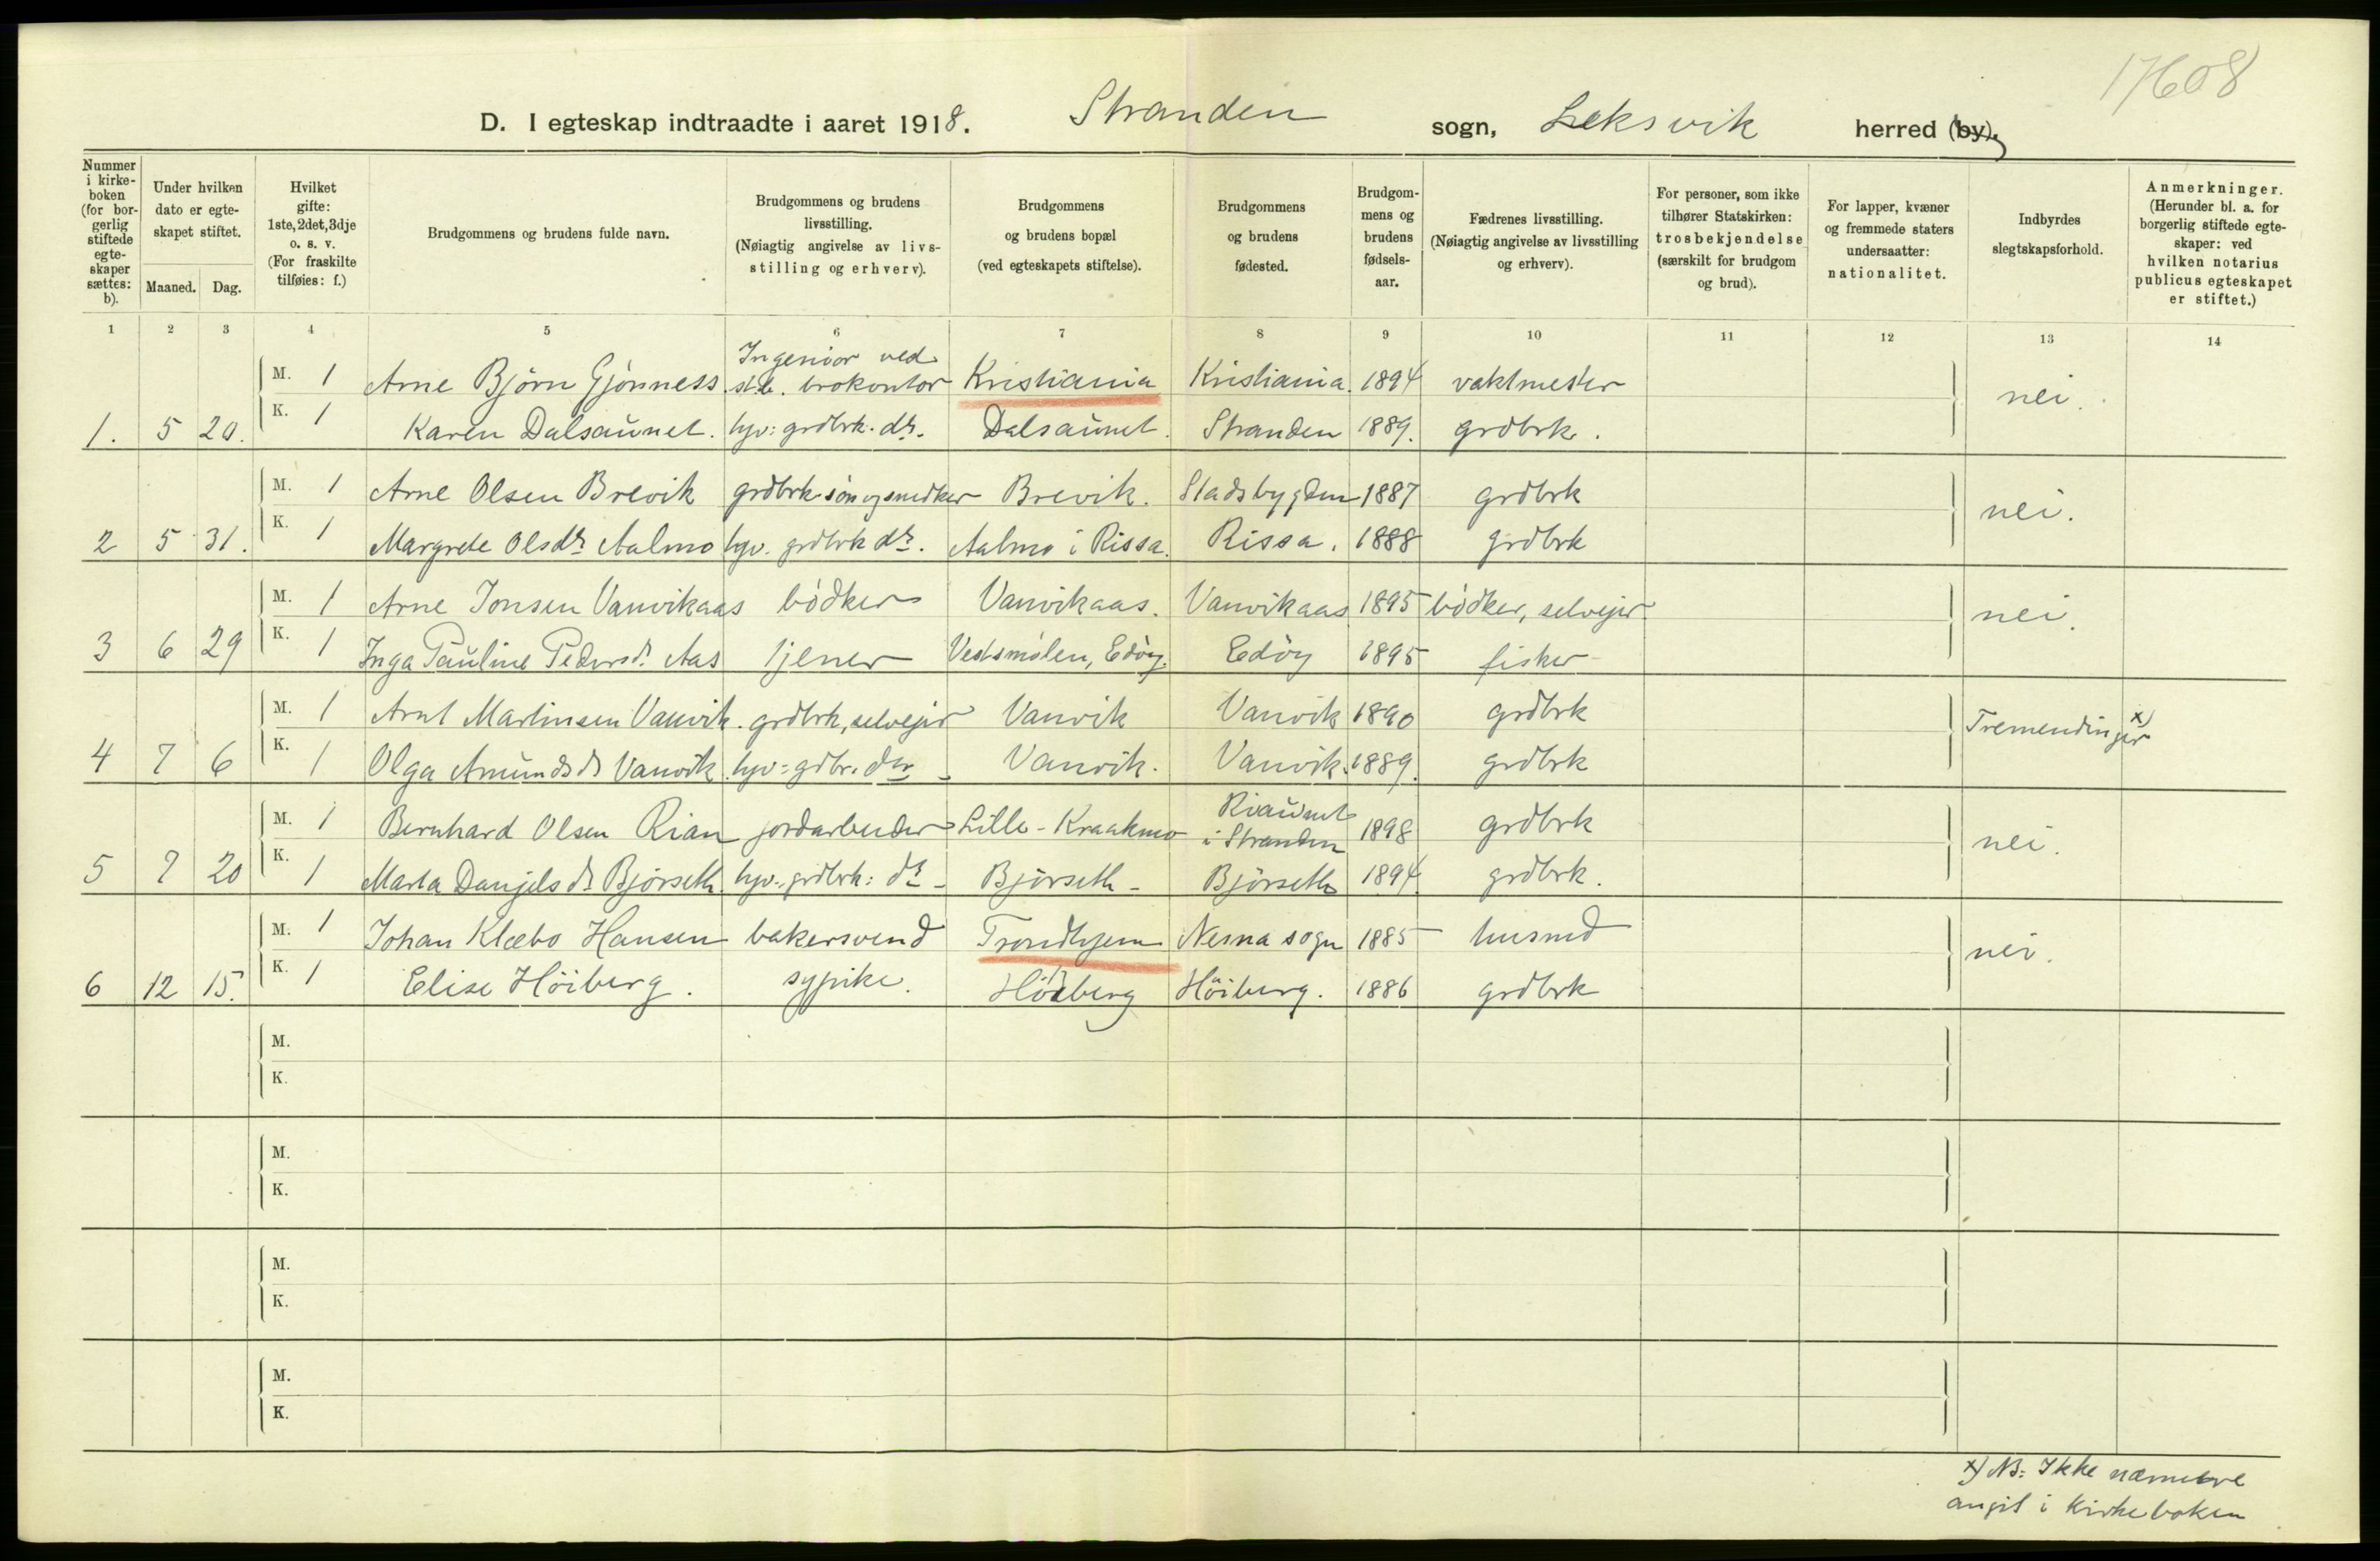 17608
D. I egteskap indtraadte i aaret 1918. Stranden sogn, Leksvik herred (by).
Nummer i kirke-boken (for bor-gerlig stiftede egte-skaper sættes: b).
Under hvilken dato er egte-skapet stiftet.
Maaned. Dag.
Hvilket gifte: 1ste, 2det, 3dje o. s. v. (For fraskilte tilføies: f.)
Brudgommens og brudens fulde navn.
Brudgommens og brudens livsstilling. (Nøiagtig angivelse av livs-stilling og erhverv).
Brudgommens og brudens bopæl (ved egteskapets stiftelse).
Brudgommens og brudens fødested.
Brudgom-mens og brudens fødsels-aar.
Fædrenes livsstilling. (Nøiagtig angivelse av livsstilling og erhverv).
For personer, som ikke tilhører Statskirken: trosbekjendelse (særskilt for brudgom og brud).
For lapper, kvæner og fremmede staters undersaatter: nationalitet.
Indbyrdes slegtskapsforhold.
Anmerkninger. (Herunder bl. a. for borgerlig stiftede egte-skaper: ved hvilken notarius publicus egteskapet er stiftet.)
1 2 3 4 5 6 7 8 9 10 11 12 13 14
Ingeniør ved
M. 1 Arne Björn Gjönness st.b. brokontor Kristiania Kristiania. 1894 vaktmester nei.
1. 5 20. K. 1 Karen Dalsaunet. hjv: grdbrk. dtr. Dalsaunet. Stranden 1889. grdbrk.
M. 1 Arne Olsen Brevik grdbrk sön og snedker Brevik. Stadsbygden 1887 grdbrk nei.
2 5 31. K. 1 Margrete Olsdtr Aalmo hjv. grdbrk dtr. Aalmo i Rissa. Rissa. 1888 grdbrk
M. 1 Arne Jonsen Vanvikaas bödker Vanvikaas. Vanvikaas 1895 bödker, selvejer nei.
3 6 29 K. 1 Inga Pauline Pedersd. Aas tjener Vestsmölen, Edöy. Edöy 1895 fisker
M. 1 Arnt Martinsen Vanvik. grdbrk, selvejer Vanvik Vanvik 1890 grdbrk Tremendinger x)
4 7 6 K. 1 Olga Amunds dtr Vanvik hjv: gdbr. dtr Vanvik. Vanvik. 1889. grdbrk
M. 1 Bernhard Olsen Rian jordarbeider Lille-Kraakmo Riaunet i Stranden 1898 grdbrk nei.
5 7 20 K. 1 Marta Danjels dtr Björseth hjv. grdbrk: dtr Björseth Björseth 1894 grdbrk.
M. 1 Johan Klæbo Hansen bakersvend Trondhjem Nesna sogn 1885 husmd nei.
6 12 15. K. 1 Elise Höiberg. sypike. Höiberg Höiberg. 1886 grdbrk
M.
K.
M.
K.
M.
K.
M.
K.
x) NB: Ikke nærmere
angit i kirkeboken